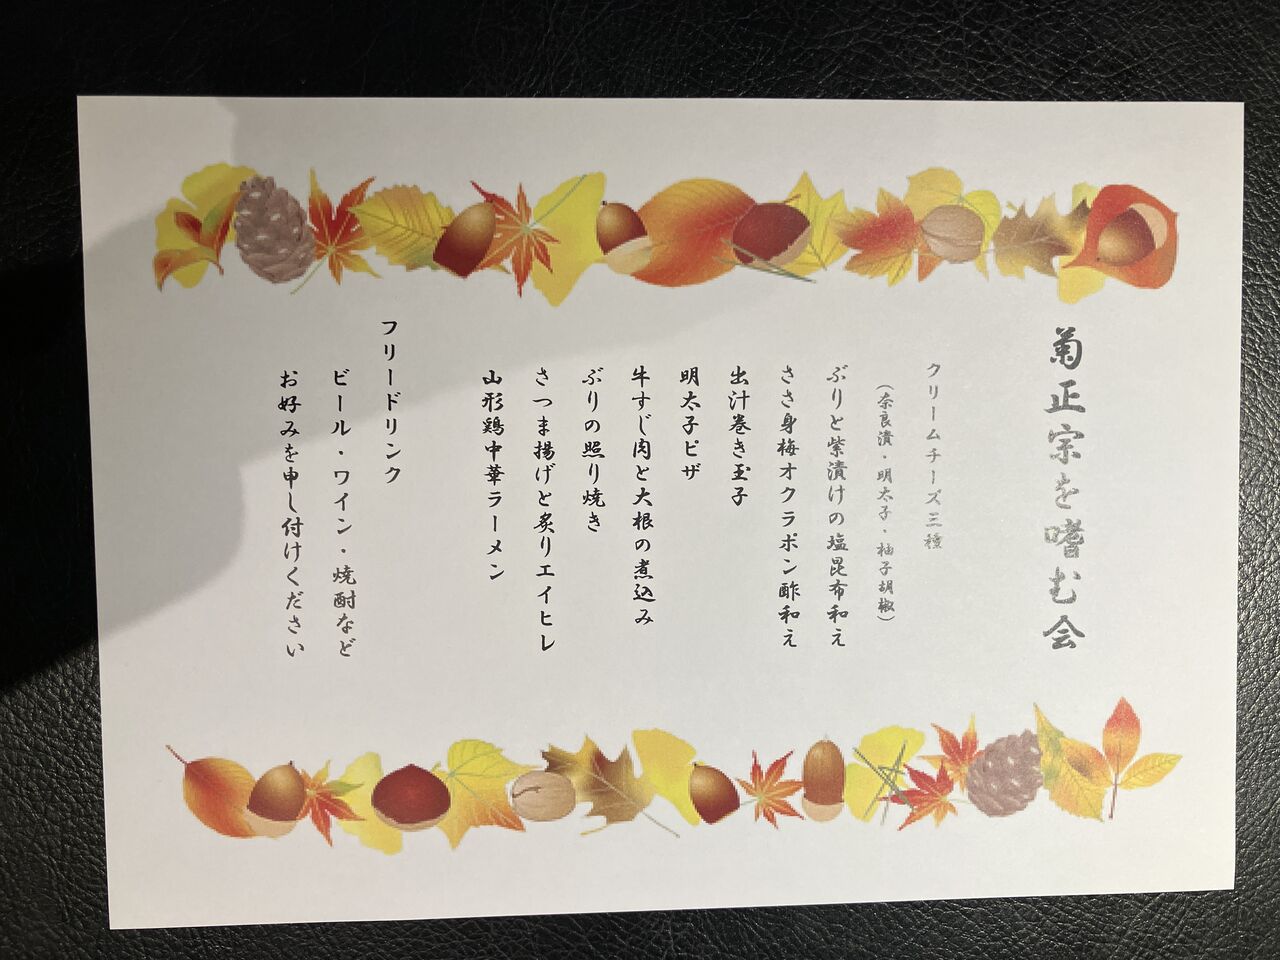 菊正宗を嗜む会
クリームチーズ三種
（奈良漬・明太子・柚子胡椒）
ぶりと紫漬けの塩昆布和え
ささ身梅オクラポン酢和え
出汁巻き玉子
明太子ピザ
牛すじ肉と大根の煮込み
ぶりの照り焼き
さつま揚げと炙りエイヒレ
山形鶏中華ラーメン
フリードリンク
ビール・ワイン・焼酎など
お好みを申し付けください